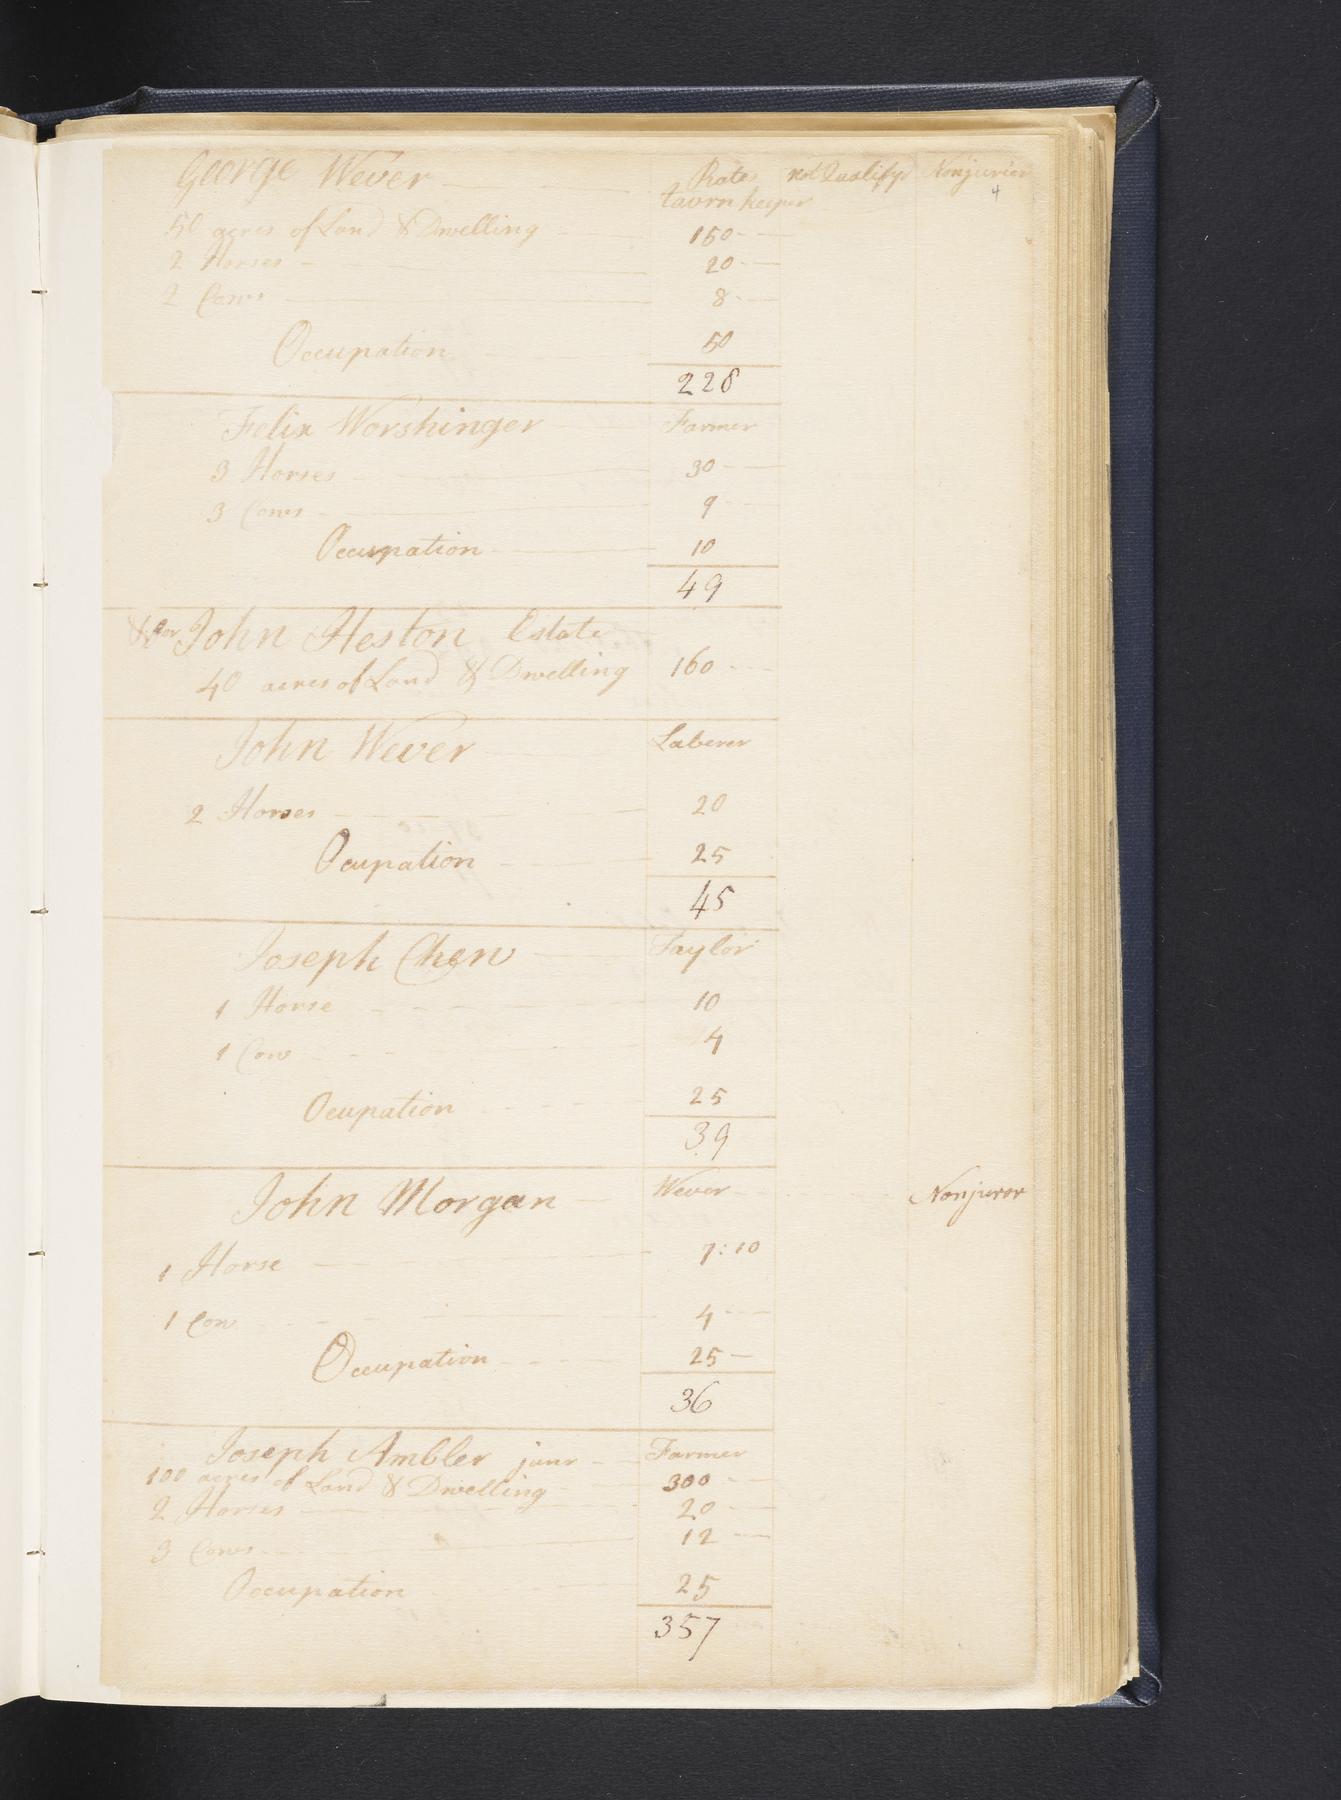 George Wever Rates not Qualifyd Nonjurier
tavrn keeper 4
50 acres of Land & Dwelling 150
2 Horses 20
2 Cows 8
Occupation 50
228
Felix Worshinger Farmer
3 Horses 30
3 Cows 9
Occupation 10
49
John Heston Estate
40 acres of Land & Dwelling 160
John Wever Laberer
2 Horses 20
Ocupation 25
45
Joseph Chen Taylor
1 Horse 10
1 Cow 4
Ocupation 25
39
John Morgan Wever Nonjuror
1 Horse 7:10
1 Cow 4
Occupation 25
36
Joseph Ambler junr Farmer
100 acres of Land & Dwelling 300
2 Horses 20
3 Cows 12
Occupation 25
357